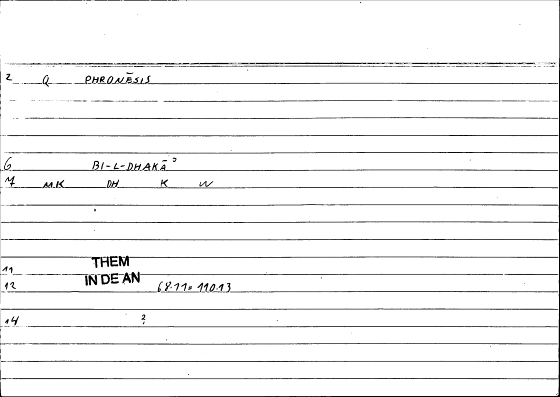 2 Q PHRONĒSIS
6 BI-L-DHAKĀʾ
7 M.K DH K W
11 THEM
12 IN DE AN 68.11 110.13
14 ?